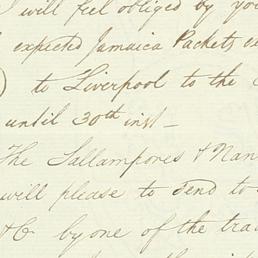 I will feel obliged by you
expected Jamaica Packets
to Liverpool to the
until 30th inst —
The Sallampores & Nan
will please to send to
&C by one of the tra